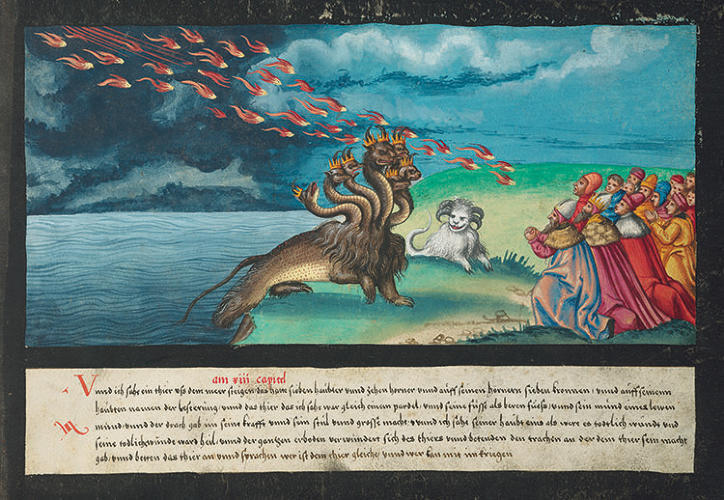 am xiii capitel
Vnnd ich sahe ein thier vß dem meer steigen das hatte sieben haubter vnnd zehen horner vnnd auff seinen hornern sieben kronnen / vnnd auff seinenn
haubten namen der lesterung / vnnd das thier das ich sahe war gleich einem pardel / vnnd seine fusse als beren fuess / vnnd sein mund eines lewen
mund / vnnd der drach gab im seine krafft vnnd sein stul vnnd grosse macht / vnnd ich sahe seiner haubt eins als wer es todtlich wundt vnd
seine todlichwunde ward heil / vnnd der gantzen erboden verwundert sich des thiers vnnd bettenden den trachen an der dem thier sein macht
gab / vnnd betten das thier an vnnd sprachen wer ist dem thier gleiche vnnd wer kan mit im kriegen